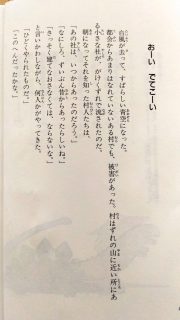 おーい　でてこーい
台風が去って、すばらしい青空になった。
都会からあまりはなれていないある村でも、被害があった。村はずれの山に近い所にあ
る小さな社が、がけくずれで流されたのだ。
朝になってそれを知った村人たちは、
「あの社は、いつからあったのだろう。」
「なにしろ、ずいぶん昔からあったらしいね。」
「さっそく建てなおさなくては、ならないな。」
と言いかわしながら、何人かがやってきた。
「ひどくやられたものだ。」
「このへんだったかな。」